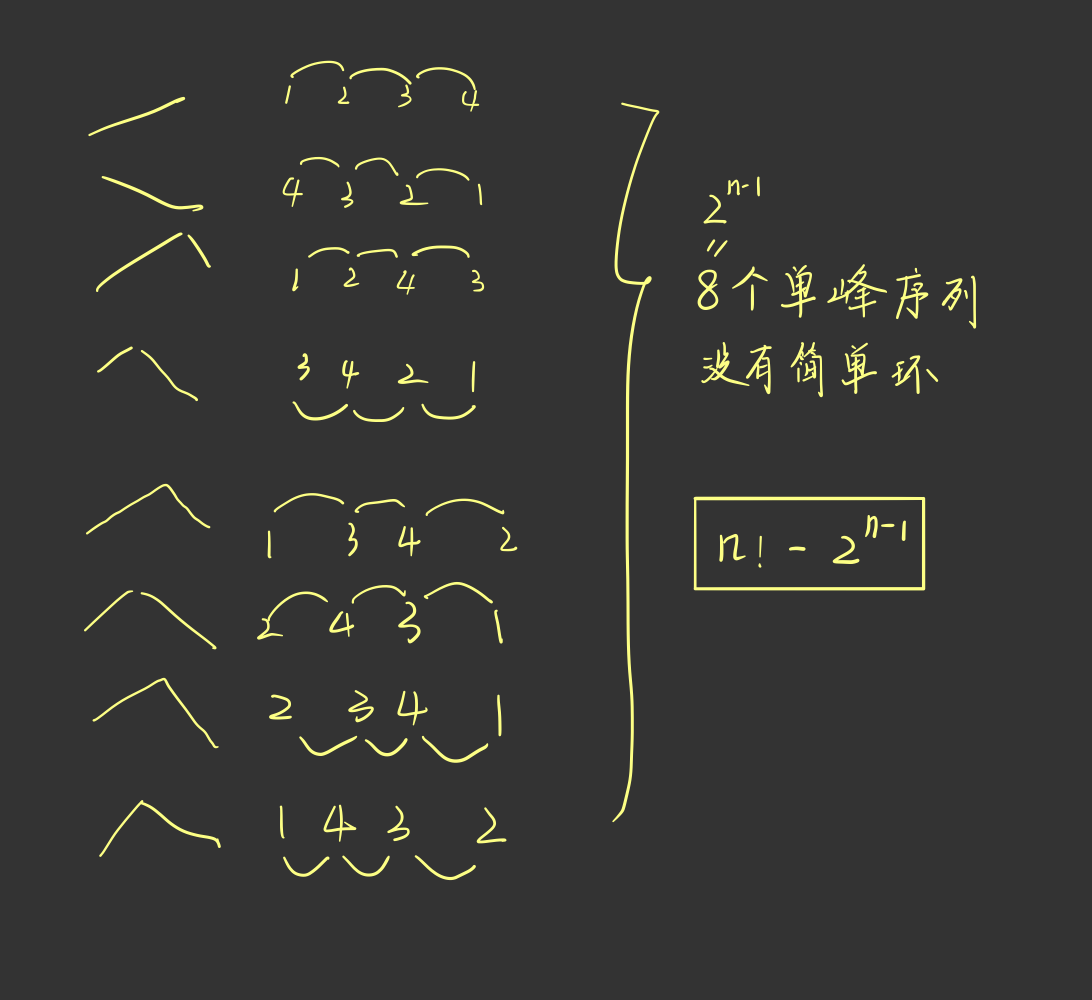 1 2 3 4
4 3 2 1
1 2 4 3
3 4 2 1
1 3 4 2
2 4 3 1
2 3 4 1
1 4 3 2
2^{n-1}
=
8个单峰序列
没有简单环
n! - 2^{n-1}